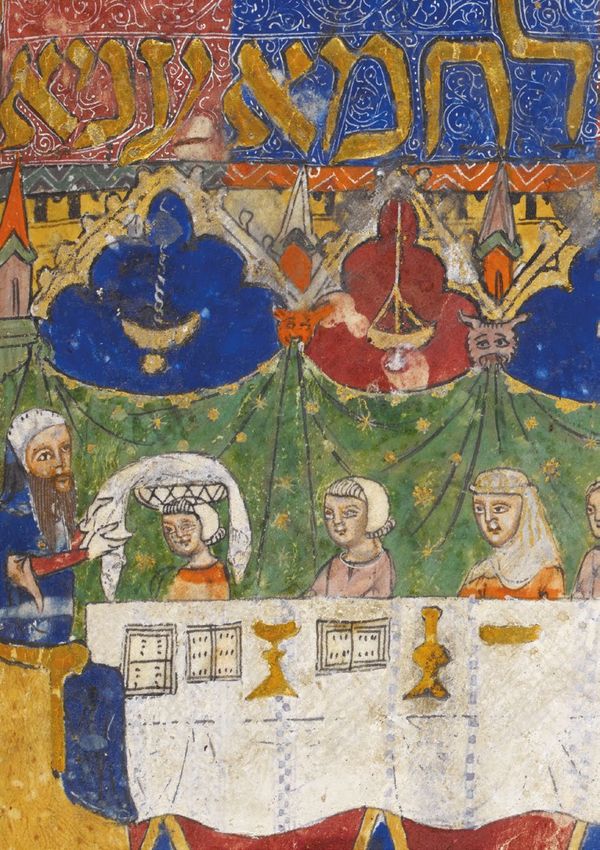 לחמא עניא